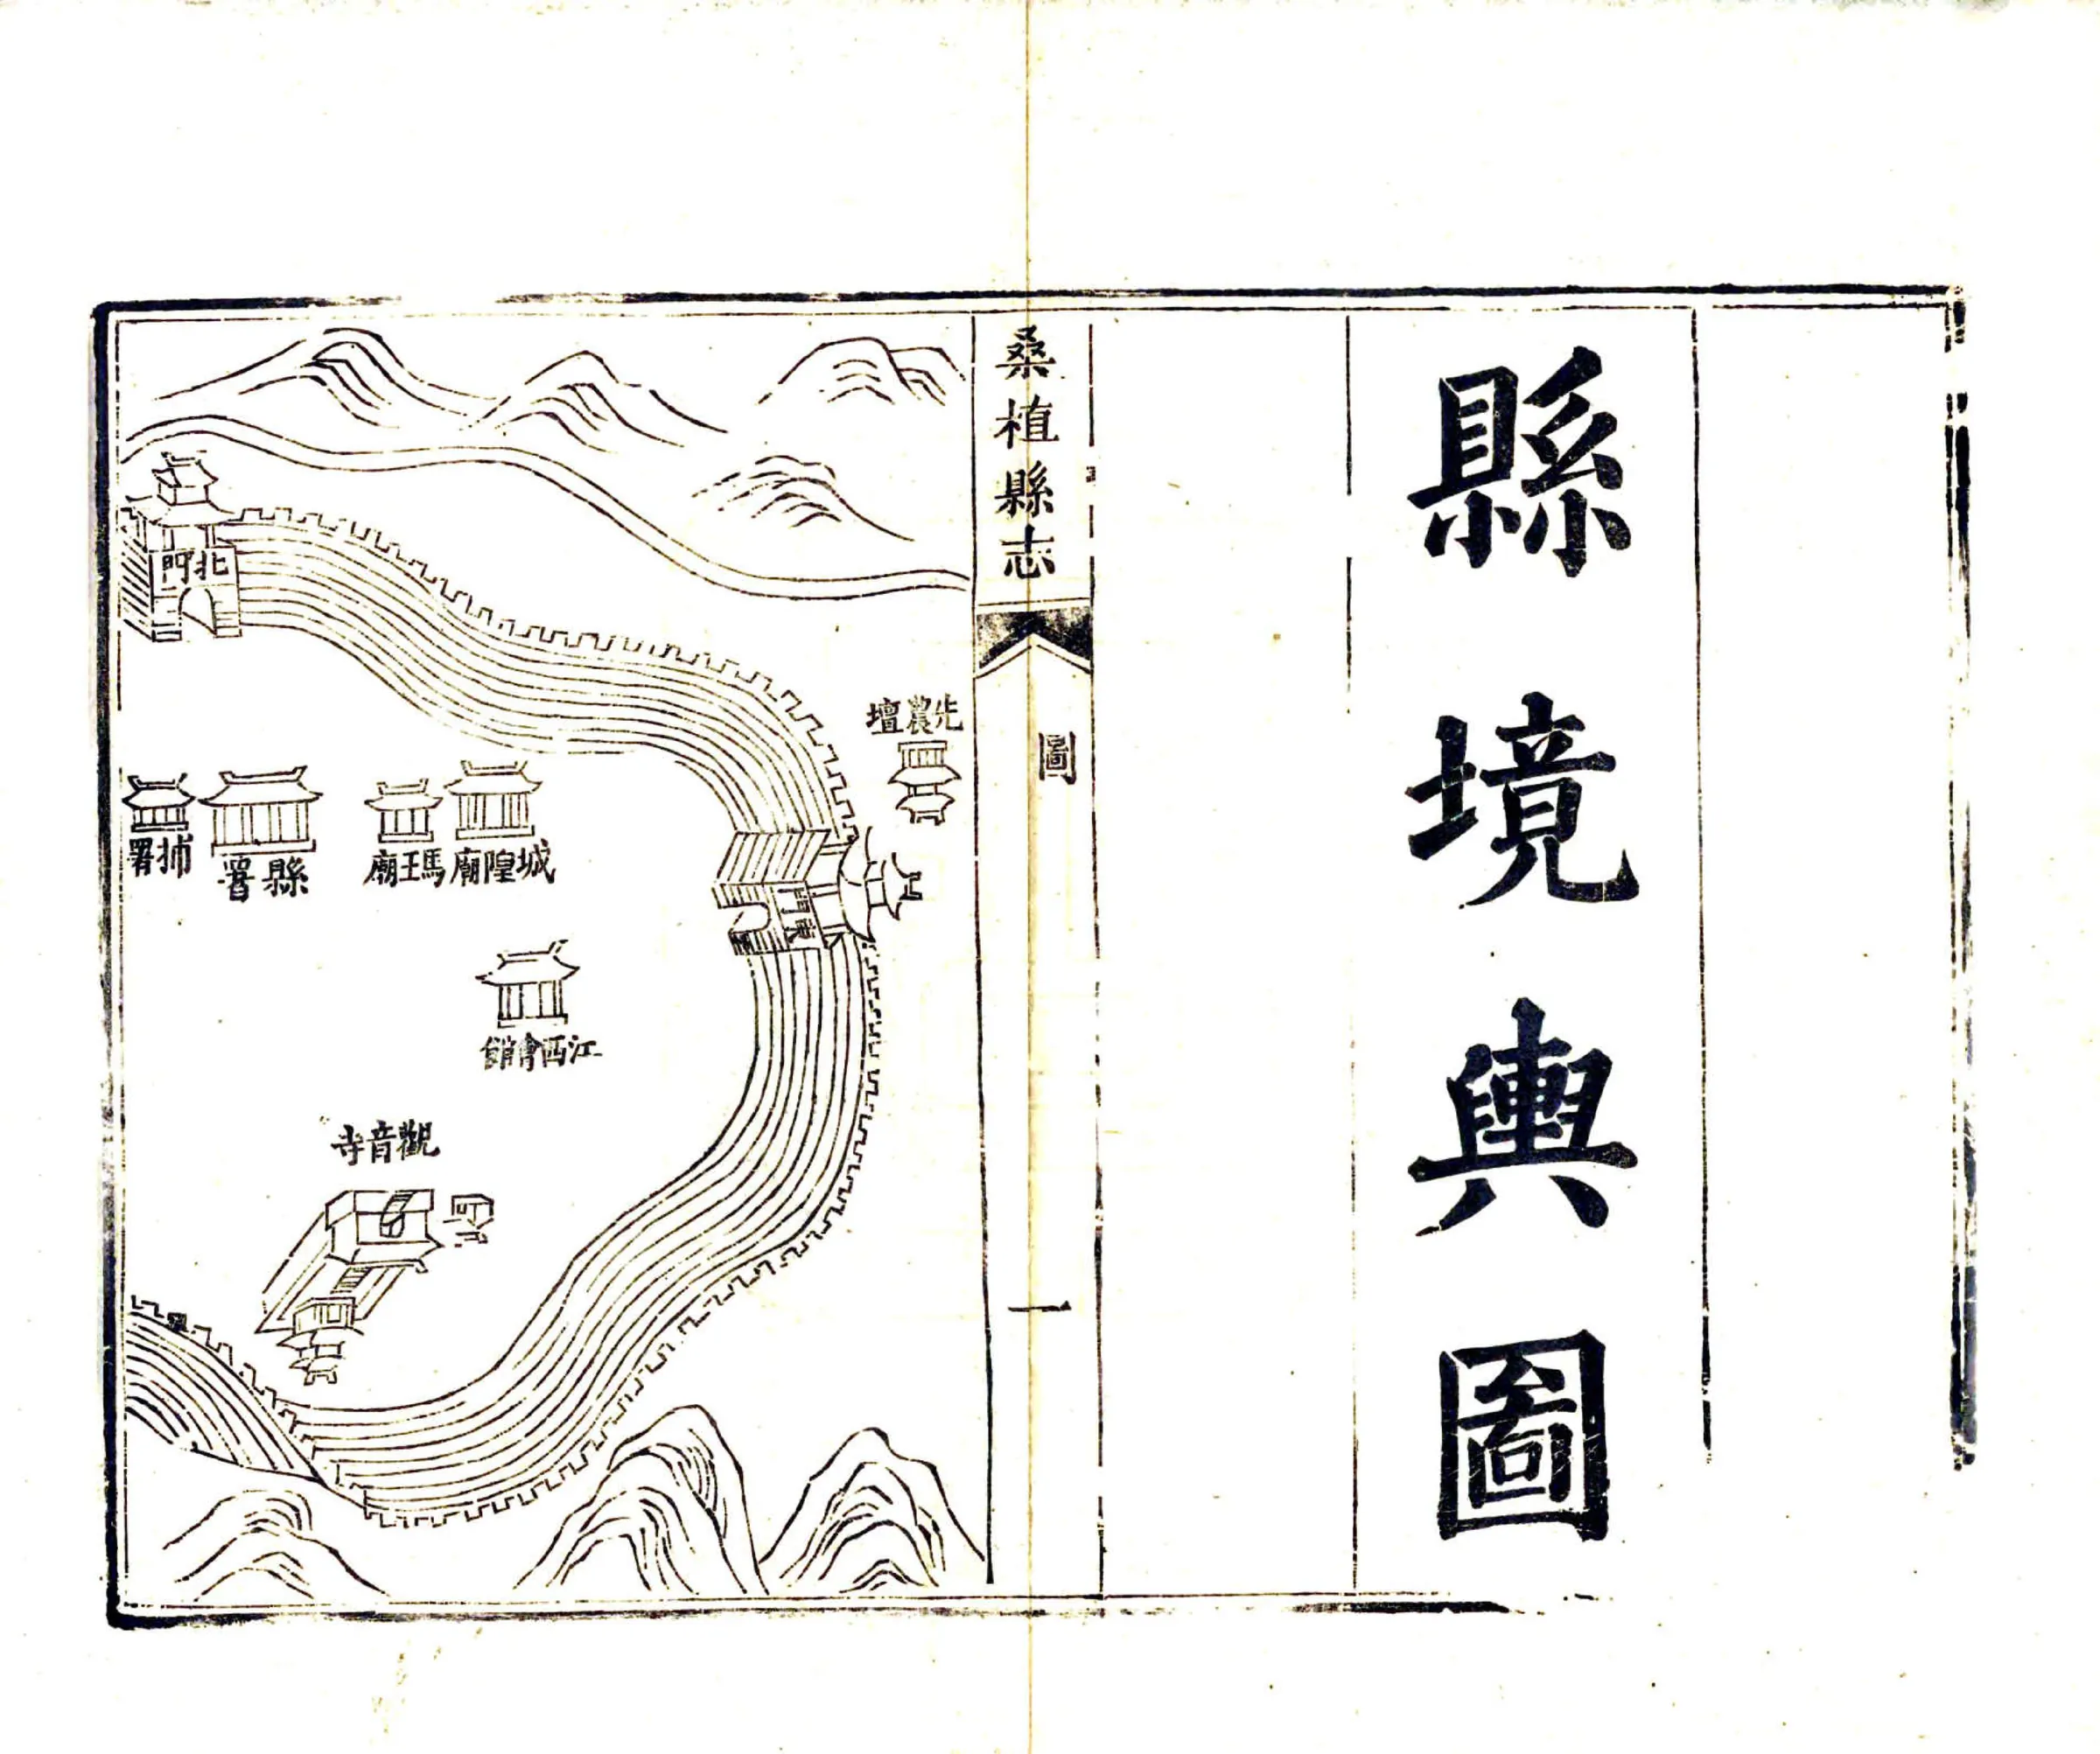 縣境輿圖
桑植縣志
圖
一
北門
先農壇
東門
城隍廟
馬王廟
縣署
捕署
江西會館
觀音寺